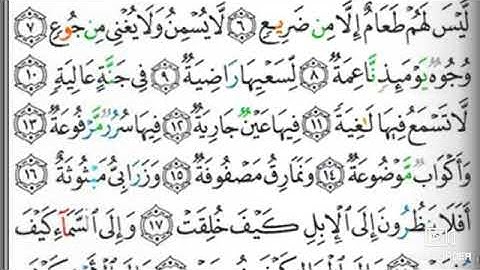 لَّيْسَ لَهُمْ طَعَامٌ إِلَّا مِن ضَرِيعٍ ٦ لَّا يُسْمِنُ وَلَا يُغْنِى مِن جُوعٍ ٧
وُجُوهٌ يَوْمَئِذٍ نَّاعِمَةٌ ٨ لِّسَعْيِهَا رَاضِيَةٌ ٩ فِى جَنَّةٍ عَالِيَةٍ ١٠
لَّا تَسْمَعُ فِيهَا لَٰغِيَةً ١١ فِيهَا عَيْنٌ جَارِيَةٌ ١٢ فِيهَا سُرُرٌ مَّرْفُوعَةٌ ١٣
وَأَكْوَابٌ مَّوْضُوعَةٌ ١٤ وَنَمَارِقُ مَصْفُوفَةٌ ١٥ وَزَرَابِىُّ مَبْثُوثَةٌ ١٦
أَفَلَا يَنظُرُونَ إِلَى ٱلْإِبِلِ كَيْفَ خُلِقَتْ ١٧ وَإِلَى ٱلسَّمَآءِ كَيْفَ